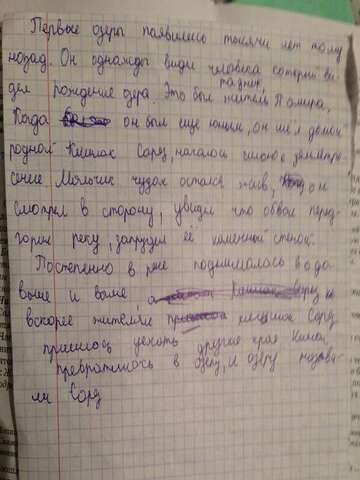 Первые озёры появились тысячи лет тому
назад. Он однажды види человека который ви-
таджик,
дел рождение озера Это был житель Памира,
Когда он был ещё юным, он шёл домой
родной Кишлак Сарз, началось сильное землетря-
сение Мальчик чудом остался жив, он
смотрел в сторону, увидел что обвал перег-
горил реку, запрудил её каменной стеной.
Постепенно в реке поднималось вода
выше и выше,
вскорее жителям кишлак Сарз
пришлось уехать другие края
превратилось в озеро, и озеру назва-
ли Сарз